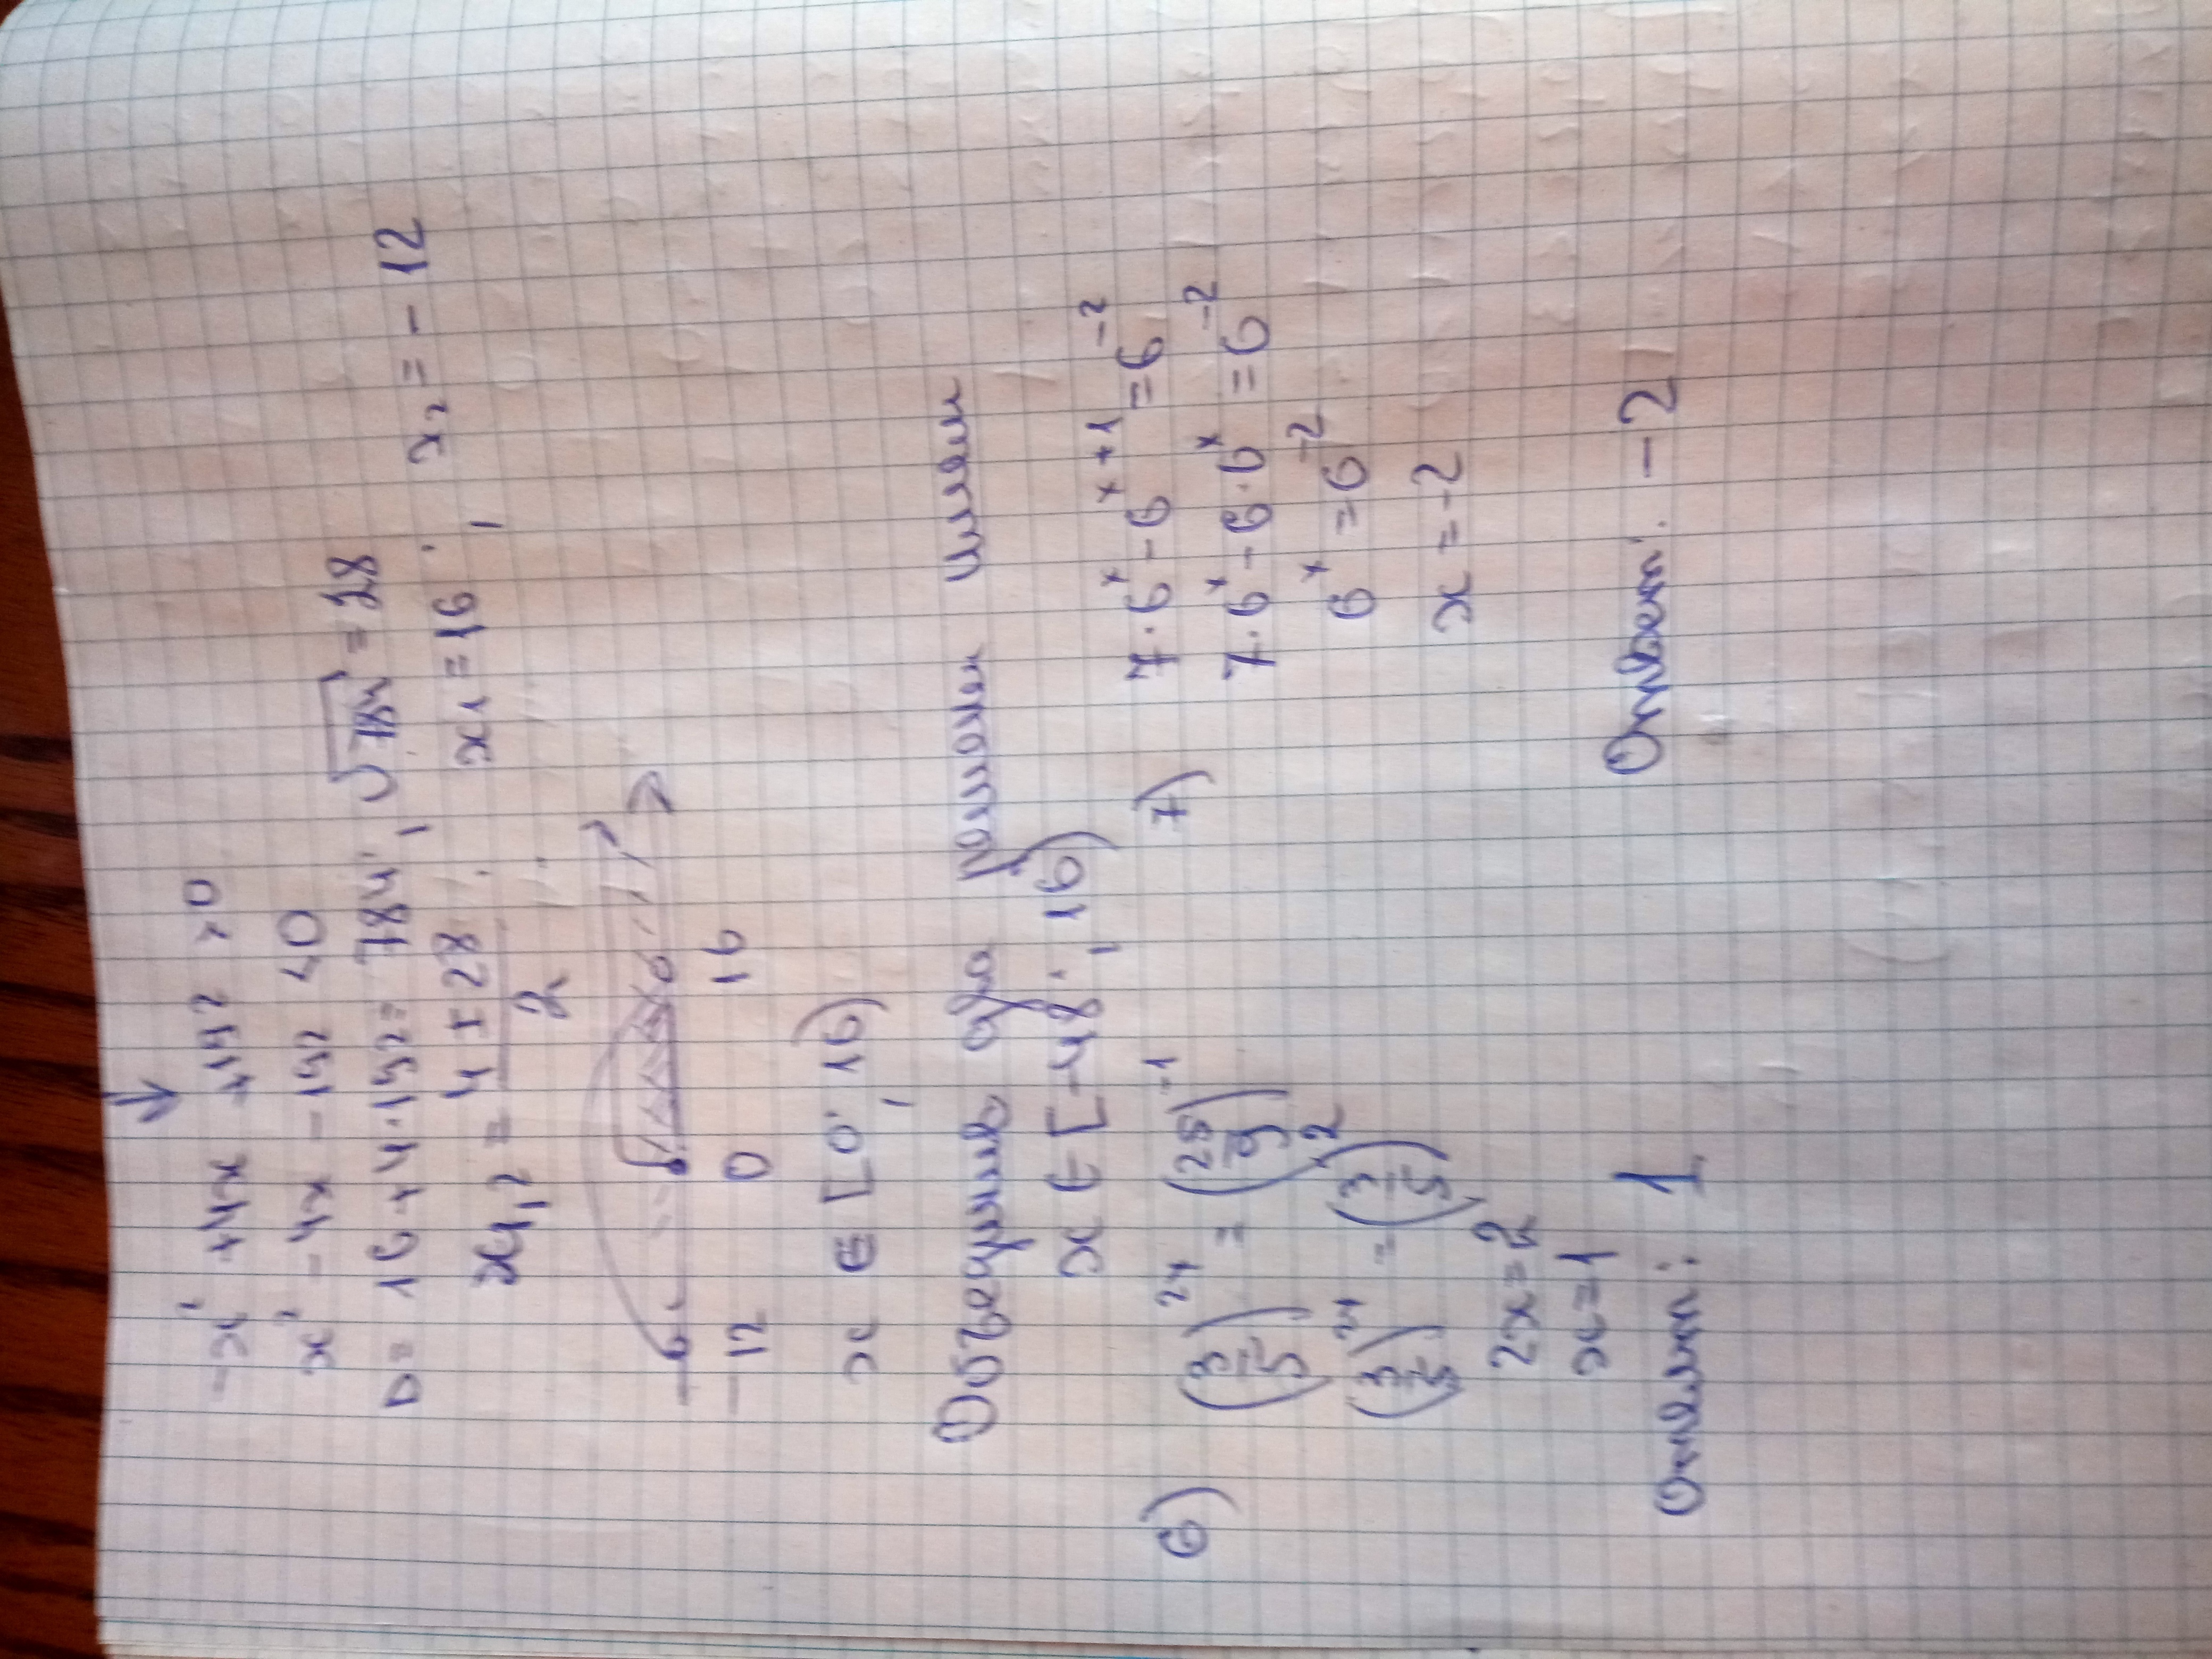 -x² +4x +192 >0
x² -4x -192 <0
D= 16+4·192= 784; √784 =28
x1,2 = (4±28)/2; x1=16; x2=-12
-12 0 16
x ∈ [0; 16)
Объединив два решения имеем
x ∈ [-48; 16)
6) (3/5)^2x = (25/9)^-1
(3/5)^2x = (3/5)^2
2x=2
x=1
Ответ: 1
7) 7·6^x-6^x+1=6^-2
7·6^x-6·6^x=6^-2
6^x=6^-2
x=-2
Ответ: -2